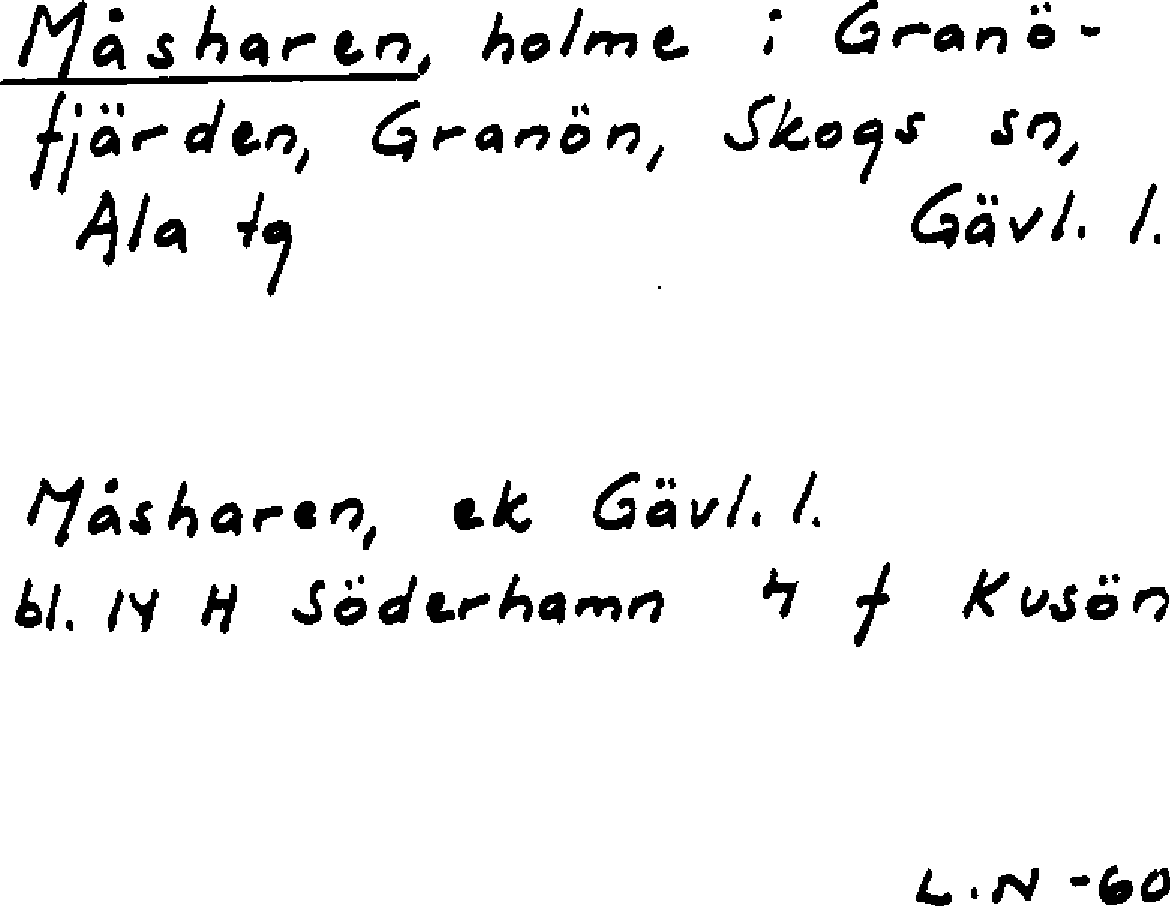 Måsharen, holme i Granö-
fjärden, Granön, Skogs sn,
Ala tg Gävl. l.
Måsharen, ek Gävl. l.
bl. 14 H Söderhamn 4 f Kusön
L.N -60